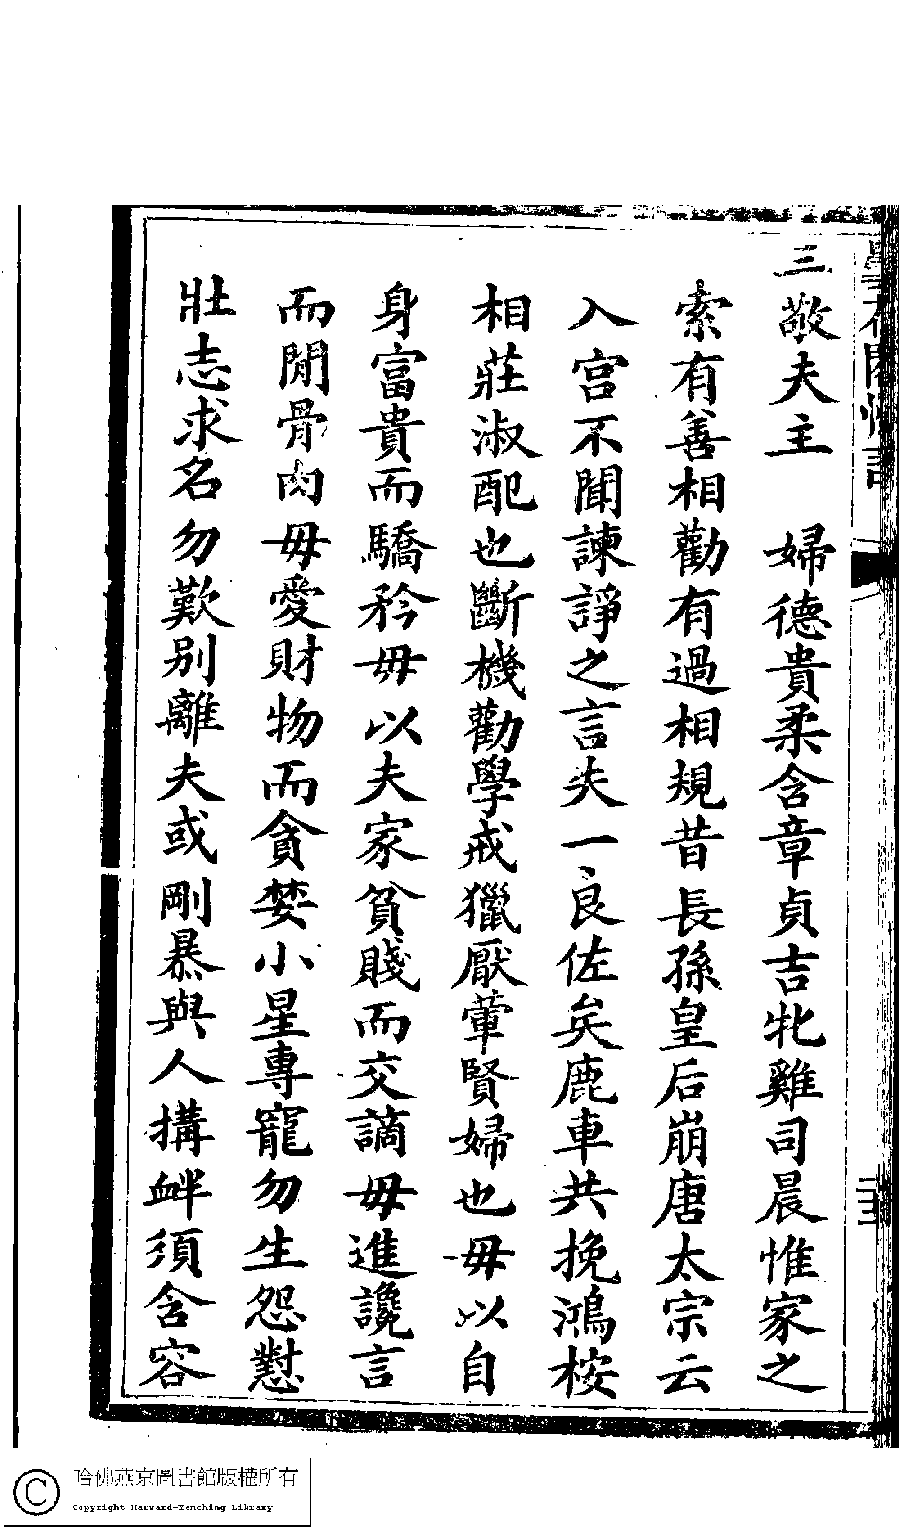 三敬夫主　婦德貴柔含章貞吉牝雞司晨惟家之
索有善相勸有過相規昔長孫皇后崩唐太宗云
入宮不聞諫諍之言失一良佐矣鹿車共挽鴻桉
相莊淑配也斷機勸學戒獵厭葷賢婦也毋以自
身富貴而驕矜毋以夫家貧賤而交謫毋進讒言
而閒骨肉毋愛財物而貪婪小星專寵勿生怨懟
壯志求名勿歎別離夫或剛暴與人搆衅須含容
哈佛燕京圖書館版權所有
Copyright Harvard-Yenching Library